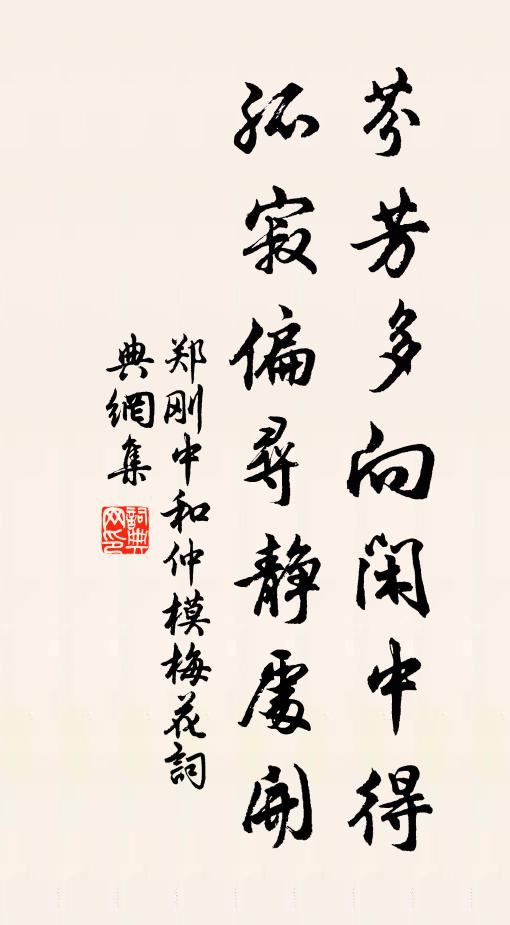 芬芳多向闲中得
孤寂偏尋静處開
郑刚中和仲模梅花詞
典網集
詞典网印